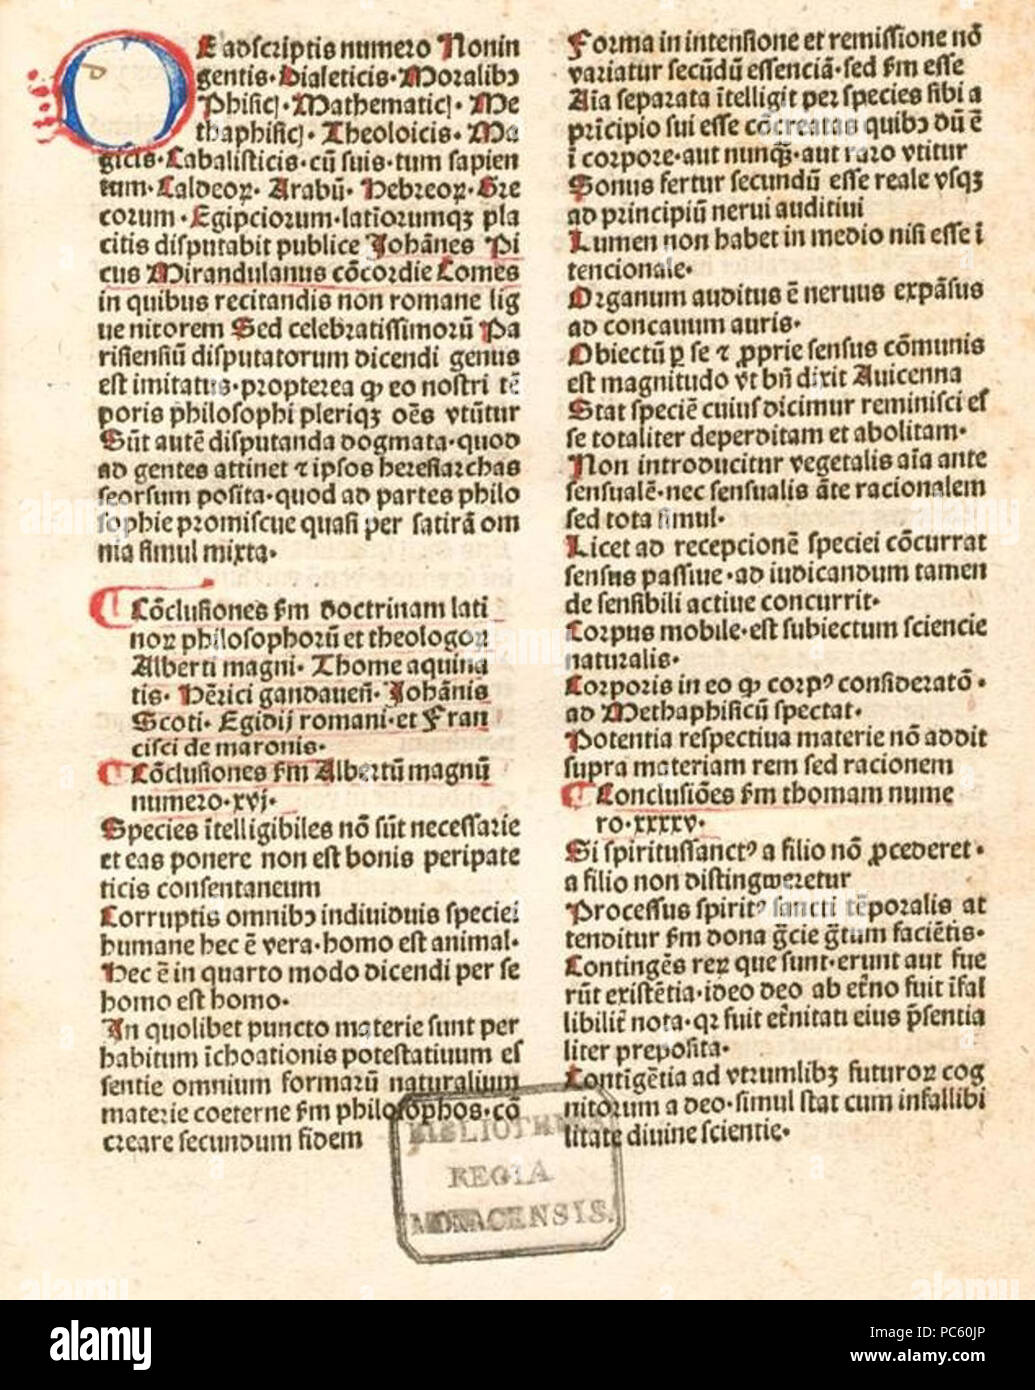 DE adscriptis numero Nonin
gentis· Dialeticis· Moralibꝯ
Phisicꝭ· Mathematicꝭ· Me
thaphisicꝭ· Theoloicis· Ma
gicis· Cabalisticis· cū suis· tum sapien
tum· Caldeoꝝ· Arabū· Hebreoꝝ· Gre
corum· Egipciorum· latiorumqꝫ pla
citis disputabit publice Johānes Pi
cus Mirandulanus cōcordie Comes
in quibus recitandis non romane lig
ue nitorem Sed celebratissimorū Pa
risiensiū disputatorum dicendi genus
est imitatus· propterea ꝙ eo nostri tē
poris philosophi pleriqꝫ oēs vtūtur
Sūt autē disputanda dogmata· quod
ad gentes attinet ⁊ ipsos heresiarchas
seorsum posita· quod ad partes philo
sophie promiscue quasi per satirā om
nia simul mixta·
Cōclusiones ẜm doctrinam lati
noꝝ philosophorū et theologoꝝ
Alberti magni· Thome aquina
tis· Hērici gandaueñ· Johānis
Scoti· Egidij romani· et Fran
cisci de maronis·
Cōclusiones ẜm Albertū magnū
numero· xvj·
Species ītelligibiles nō sūt necessarie
et eas ponere non est bonis peripate
ticis consentaneum
Corruptis omnibꝯ indiuiduis speciei
humane hec ē vera· homo est animal·
Hec ē in quarto modo dicendi per se
homo est homo·
In quolibet puncto materie sunt per
habitum īchoationis potestatiuum es
sentie omnium formarū naturalium
materie coeterne ẜm philosophos· cō
creare secundum fidem
Forma in intensione et remissione nō
variatur secūdū essenciā· sed ẜm esse
Aīa separata ītelligit per species sibi a
prīcipio sui esse cōcreatas quibꝯ dū ē
ī corpore· aut nunqꝫ̄· aut raro vtitur
Sonus fertur secundū esse reale vsqꝫ
ad principiū nerui auditiui
Lumen non habet in medio nisi esse ī
tencionale·
Organum auditus ē neruus expāsus
ad concauum auris·
Obiectū ꝑ se ⁊ ꝓprie sensus cōmunis
est magnitudo vt bn̄ dixit Auicenna
Stat speciē cuius dicimur reminisci es
se totaliter deperditam et abolitam·
Non introducitur vegetalis aīa ante
sensualē· nec sensualis āte racionalem
sed tota simul·
Licet ad recepcionē speciei cōcurrat
sensus passiue· ad iudicandum tamen
de sensibili actiue concurrit·
Corpus mobile· est subiectum sciencie
naturalis·
Corporis in eo ꝙ corpꝰ consideratō·
ad Methaphisicū spectat·
Potentia respectiua materie nō addit
supra materiam rem sed racionem
Conclusiōes ẜm thomam nume
ro· xxxxv·
Si spiritussanctꝰ a filio nō ꝓcederet·
a filio non distingweretur
Processus spiritꝰ sancti tēporalis at
tenditur ẜm dona ḡcie ḡtum faciētis·
Contingēs reꝝ que sunt· erunt aut fue
rūt existētia· ideo deo ab et̄no fuit īfal
libilit̄ nota· qꝛ fuit et̄nitati eius p̄sentia
liter preposita·
Contigētia ad vtrumlibꝫ futuroꝝ cog
nitorum a deo· simul stat cum infallibi
litate diuine scientie·
BIBLIOTHECA
REGIA
MONACENSIS.
alamy
PC60JP
www.alamy.com